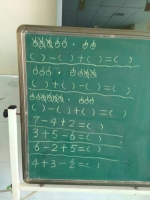 ( ) - ( ) + ( ) = ( )
( ) + ( ) - ( ) = ( )
( ) - ( ) + ( ) = ( )
7 - 4 + 2 = ( )
3 + 5 - 6 = ( )
6 - 2 + 5 = ( )
4 + 3 - 2 = ( )